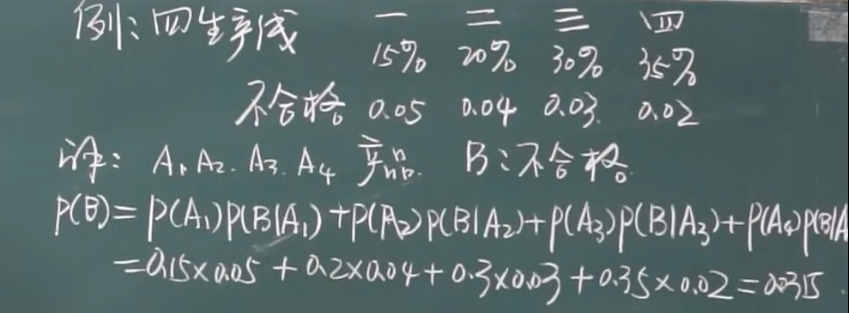 例：四生产线 一 二 三 四
15% 20% 30% 35%
不合格 0.05 0.04 0.03 0.02
译: A₁ A₂. A₃. A₄ 产品. B：不合格.
P(B)=P(A₁)P(B|A₁)+P(A₂)P(B|A₂)+P(A₃)P(B|A₃)+P(A₄)P(B|A
=0.15×0.05+0.2×0.04+0.3×0.03+0.35×0.02=0.0315.